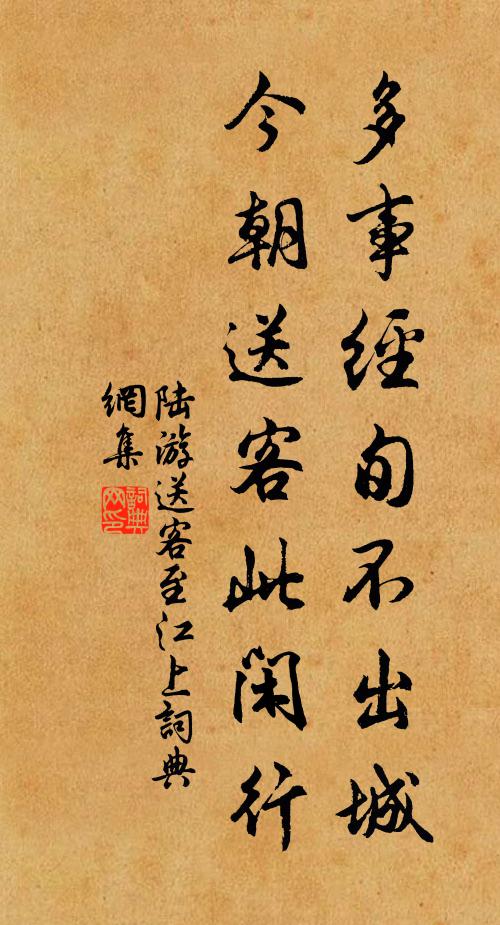 多事經旬不出城
今朝送客此閑行
陆游送客至江上詞典
網集
詞典
网印